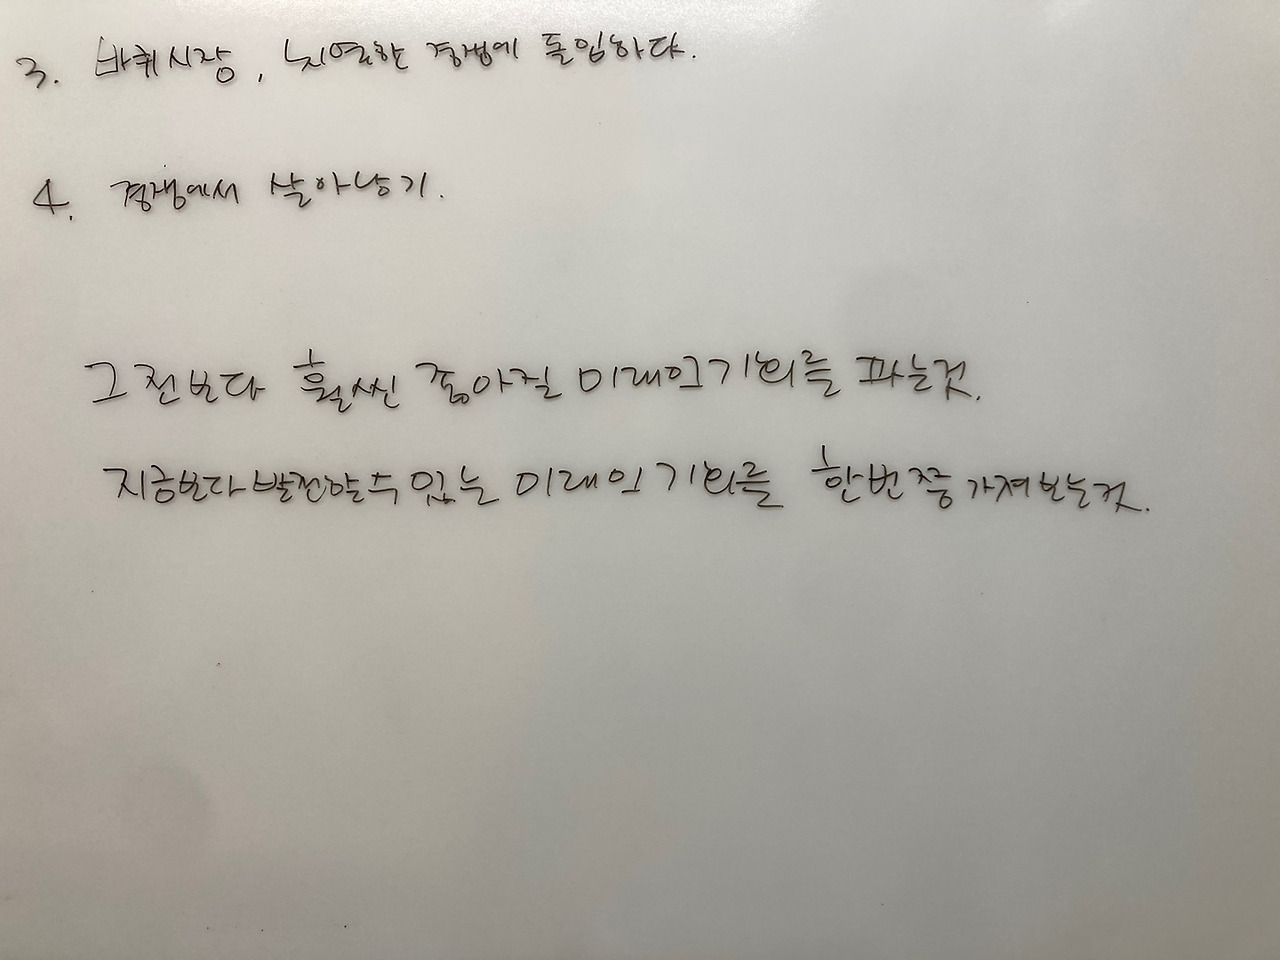 3. 바퀴시장, 치열한 경쟁에 돌입하다.
4. 경쟁에서 살아남기.
그 전보다 훨씬 좋아질 미래의 기회를 파는것.
지금보다 발전할 수 있는 미래의 기회를 한번쯤 가져보는것.